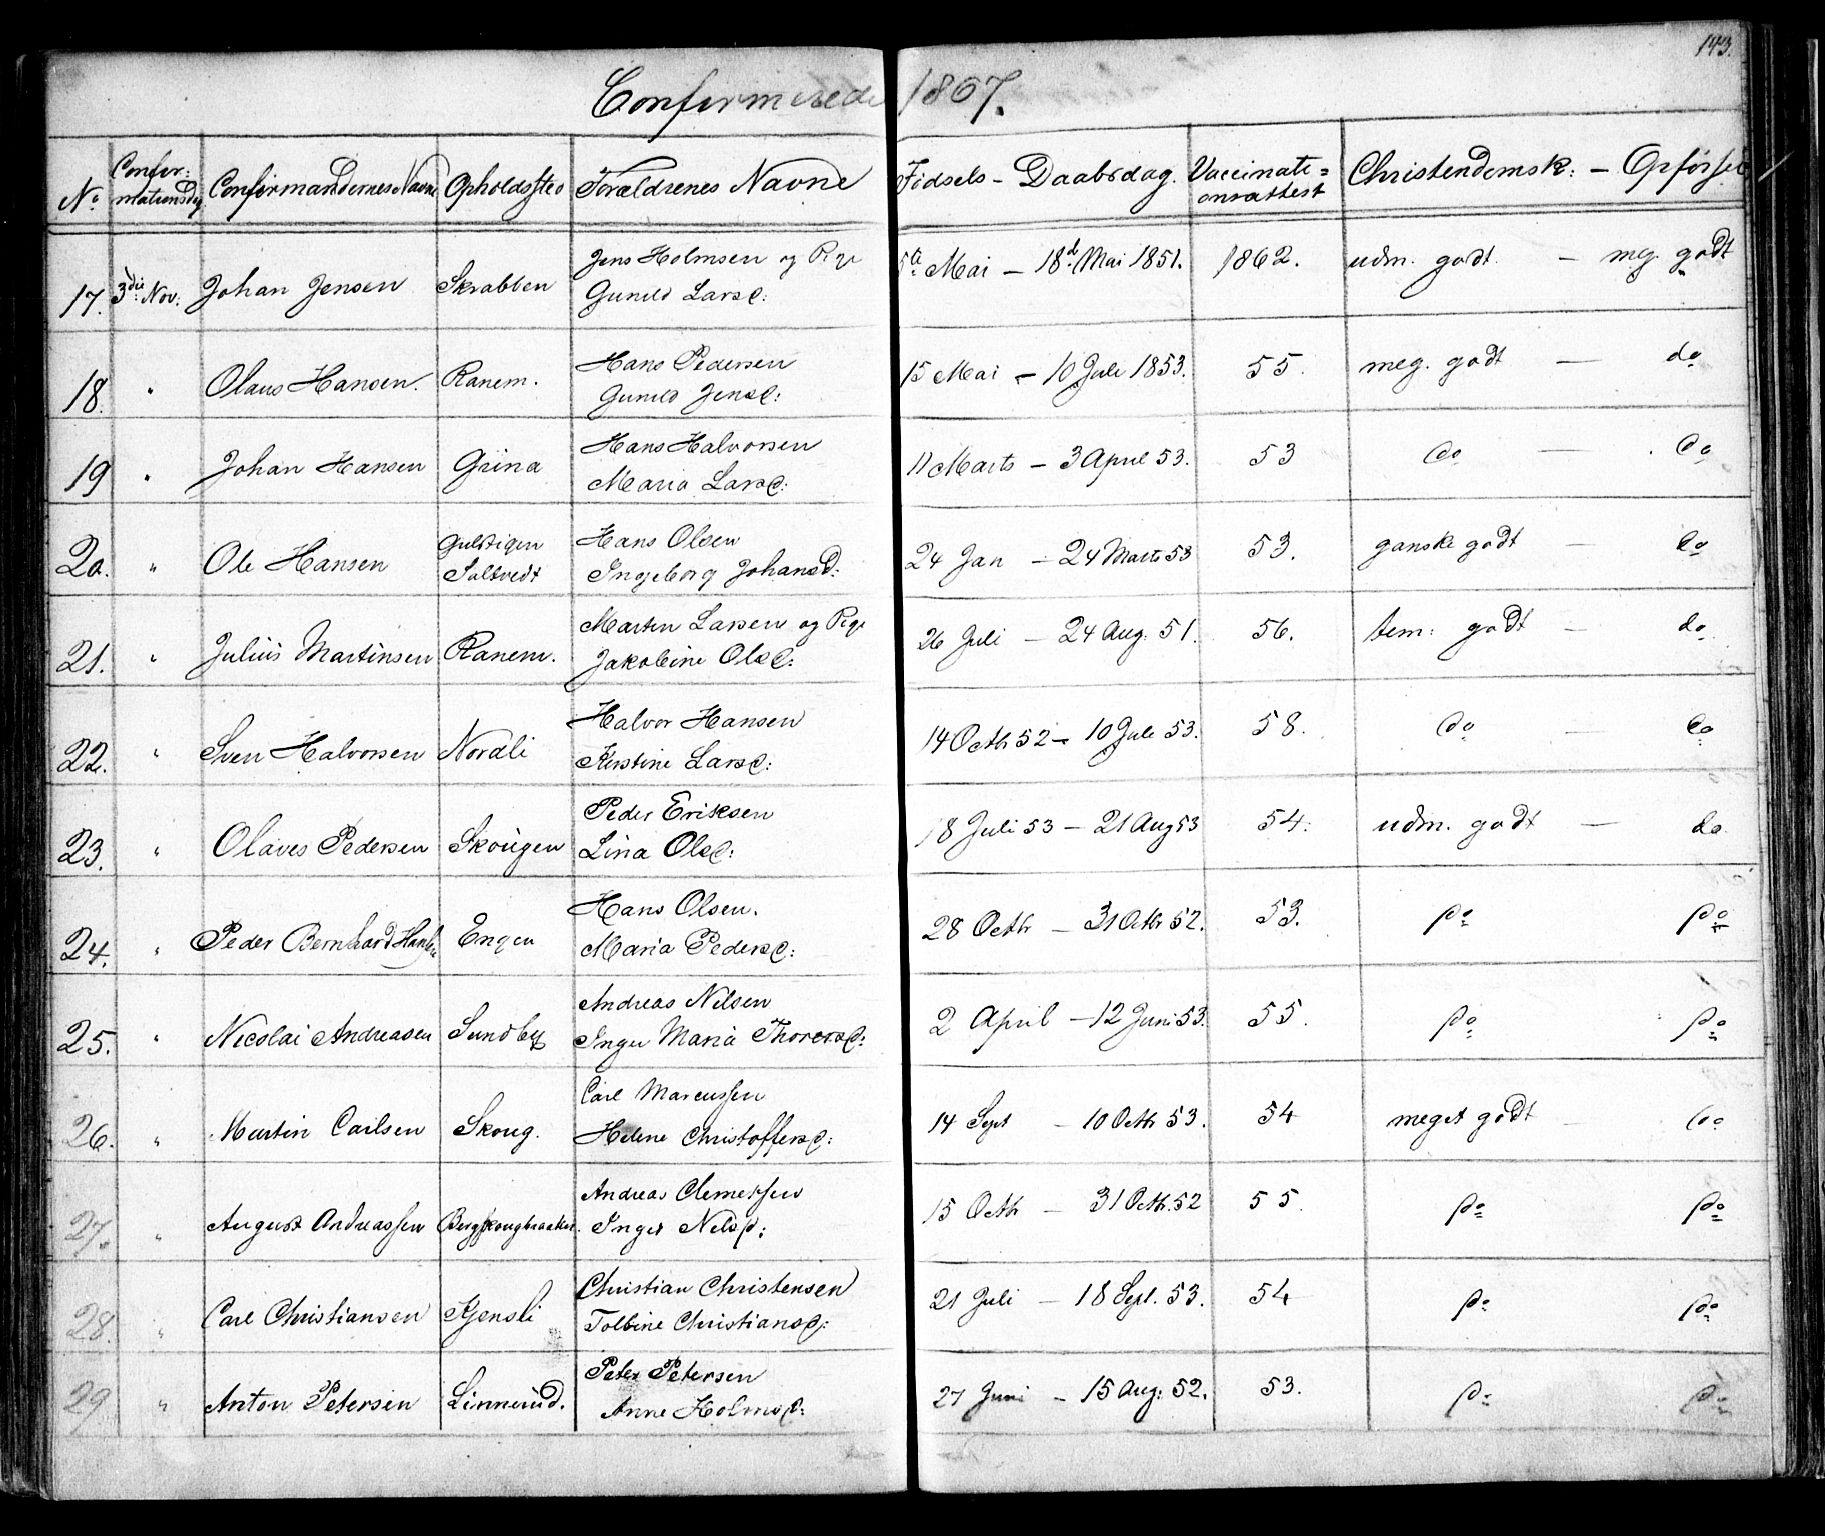 143.
Confirmerede 1867.
No Confirmationsdag Confirmandernes Navne Opholdssted Forældrenes Navne Fødsels - Daabsdag. Vaccinationsattest Christendomsk: - Opførsel
17. 3die Nov: Johan Jensen Skrabben Jens Holmsen og Pige Gunild Larsd: 5te Mai - 18d. Mai 1851. 1862. udm. godt. - meg. godt
18. " Olaus Hansen. Ranem. Hans Pedersen Gunild Jensd: 15 Mai - 10 Juli 1853. 55. meg. godt - do
19 " Johan Hansen Grina Hans Halvorsen Maria Larsd: 11 Marts - 3 April 53. 53 do - do
20. " Ole Hansen Saltvedt Hans Olsen Ingeborg Johansd: 24 Jan - 24 Marts 53 53. ganske godt - do
21. " Julius Martinsen Ranem. Martin Larsen og Pige Jakobine Olsd: 26 Juli - 24 Aug. 51. 56. tem: godt - do
22. " Sven Halvorsen Nordli Halvor Hansen Kirstine Larsd: 14 Octbr 52 - 10 Juli 53. 58. do - do
23. " Olaves Pedersen Skougen Peder Eriksen Lina Olsd: 18 Juli 53 - 21 Aug 53 54. udm. godt - do
24. " Peder Bernhard Hansen Engen Hans Olsen. Maria Pedersd: 28 Octbr - 31 Octbr 52. 53. do do
25. " Nicolai Andreasen Sundby Andreas Nilsen Inger Maria Thorersd: 2 April - 12 Juni 53. 55. do do
26. " Martin Carlsen Skoug. Carl Marcussen Helene Christoffersd: 14 Sept - 10 Octbr 53. 54 meget godt - do
27. " August Andreassen Bergskougbraaten. Andreas Clemetsen Inger Nelsd: 15 Octbr - 31 Octbr. 52 55. do do
28. " Carl Christiansen Kjensli Christian Christensen Tolbine Christiansd: 21 Juli - 18 Sept. 53. 54 do do
29 " Anton Petersen Linnerud. Peter Petersen Anne Holmsd: 27 Juni - 15 Aug: 52. 53. do do